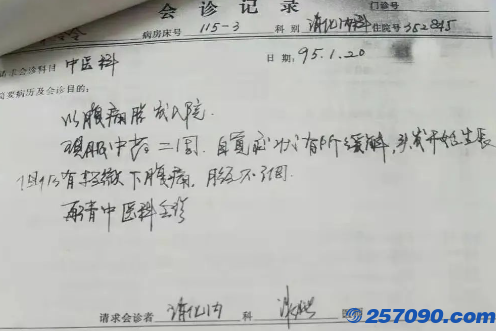 会诊记录
门诊号
病房床号 115-3 科别 消化内科 住院号 352845
请求会诊科目 中医科 日期：95.1.20
简要病历及会诊目的：
以腹痛 入院.
现服中药二周. 自觉症状有所缓解，头发开始生长
但仍有轻微下腹痛，
再请中医科会诊
请求会诊者 消化内 科 医师
257090.com